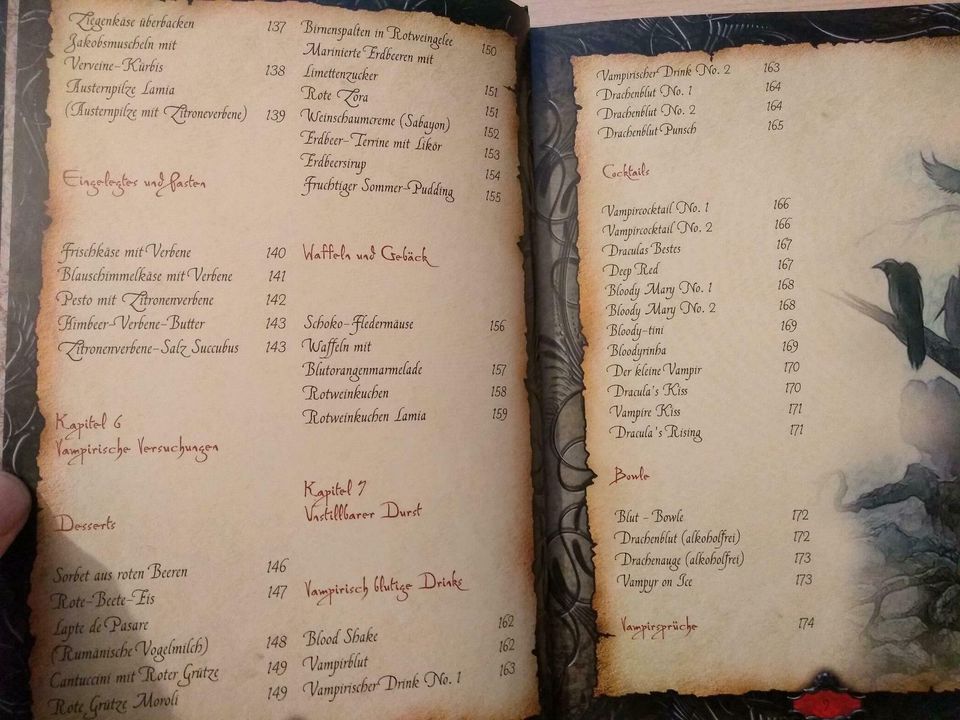 Ziegenkäse überbacken 137
Jakobsmuscheln mit
Verveine-Kürbis 138
Austernpilze Lamia
(Austernpilze mit Zitroneverbene) 139
Eingelegtes und Pasten
Frischkäse mit Verbene 140
Blauschimmelkäse mit Verbene 141
Pesto mit Zitronenverbene 142
Himbeer-Verbene-Butter 143
Zitronenverbene-Salz Succubus 143
Kapitel 6
Vampirische Versuchungen
Desserts
Sorbet aus roten Beeren 146
Rote-Beete-Eis 147
Lapte de Pasare
(Rumänische Vogelmilch) 148
Cantuccini mit Roter Grütze 149
Rote Grütze Moroli 149
Birnenspalten in Rotweingelee 150
Marinierte Erdbeeren mit
Limettenzucker 151
Rote Zora 151
Weinschaumcreme (Sabayon) 152
Erdbeer-Terrine mit Likör 153
Erdbeersirup 154
Fruchtiger Sommer-Pudding 155
Waffeln und Gebäck
Schoko-Fledermäuse 156
Waffeln mit
Blutorangenmarmelade 157
Rotweinkuchen 158
Rotweinkuchen Lamia 159
Kapitel 7
Unstillbarer Durst
Vampirisch blutige Drinks
Blood Shake 162
Vampirblut 162
Vampirischer Drink No. 1 163
Vampirischer Drink No. 2 163
Drachenblut No. 1 164
Drachenblut No. 2 164
Drachenblut Punsch 165
Cocktails
Vampircocktail No. 1 166
Vampircocktail No. 2 166
Draculas Bestes 167
Deep Red 167
Bloody Mary No. 1 168
Bloody Mary No. 2 168
Bloody-tini 169
Bloodyrinha 169
Der kleine Vampir 170
Dracula's Kiss 170
Vampire Kiss 171
Dracula's Rising 171
Bowle
Blut - Bowle 172
Drachenblut (alkoholfrei) 172
Drachenauge (alkoholfrei) 173
Vampyr on Ice 173
Vampirsprüche 174
9